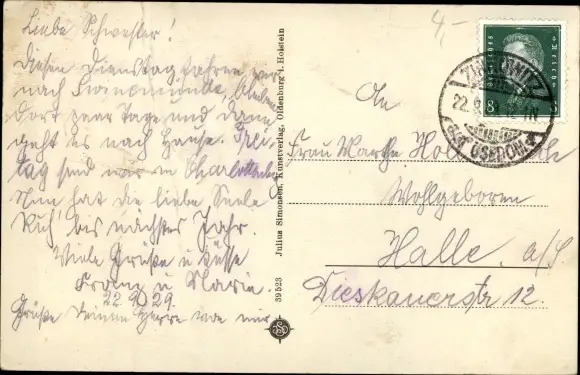 Liebe Schwester!
Diesen Dienstag fahren wir
nach Swinemünde, bleiben
dort paar Tage und dann
geht es nach Hause. Frei-
tag sind wir in Charlottenbg
Nun hat die liebe Seele
Ruh' bis nächstes Jahr.
Viele Grüße u Küsse
Franz u Maria.
22 9 29.
Grüße Deinen Herrn von mir
39523 Julius Simonsen, Kunstverlag, Oldenburg i. Holstein
4,-
8
ZINNOWITZ
22.9.
USEDOM
An
Frau Martha
Wohlgeboren
Halle a/S.
Dieskauerstr 12.